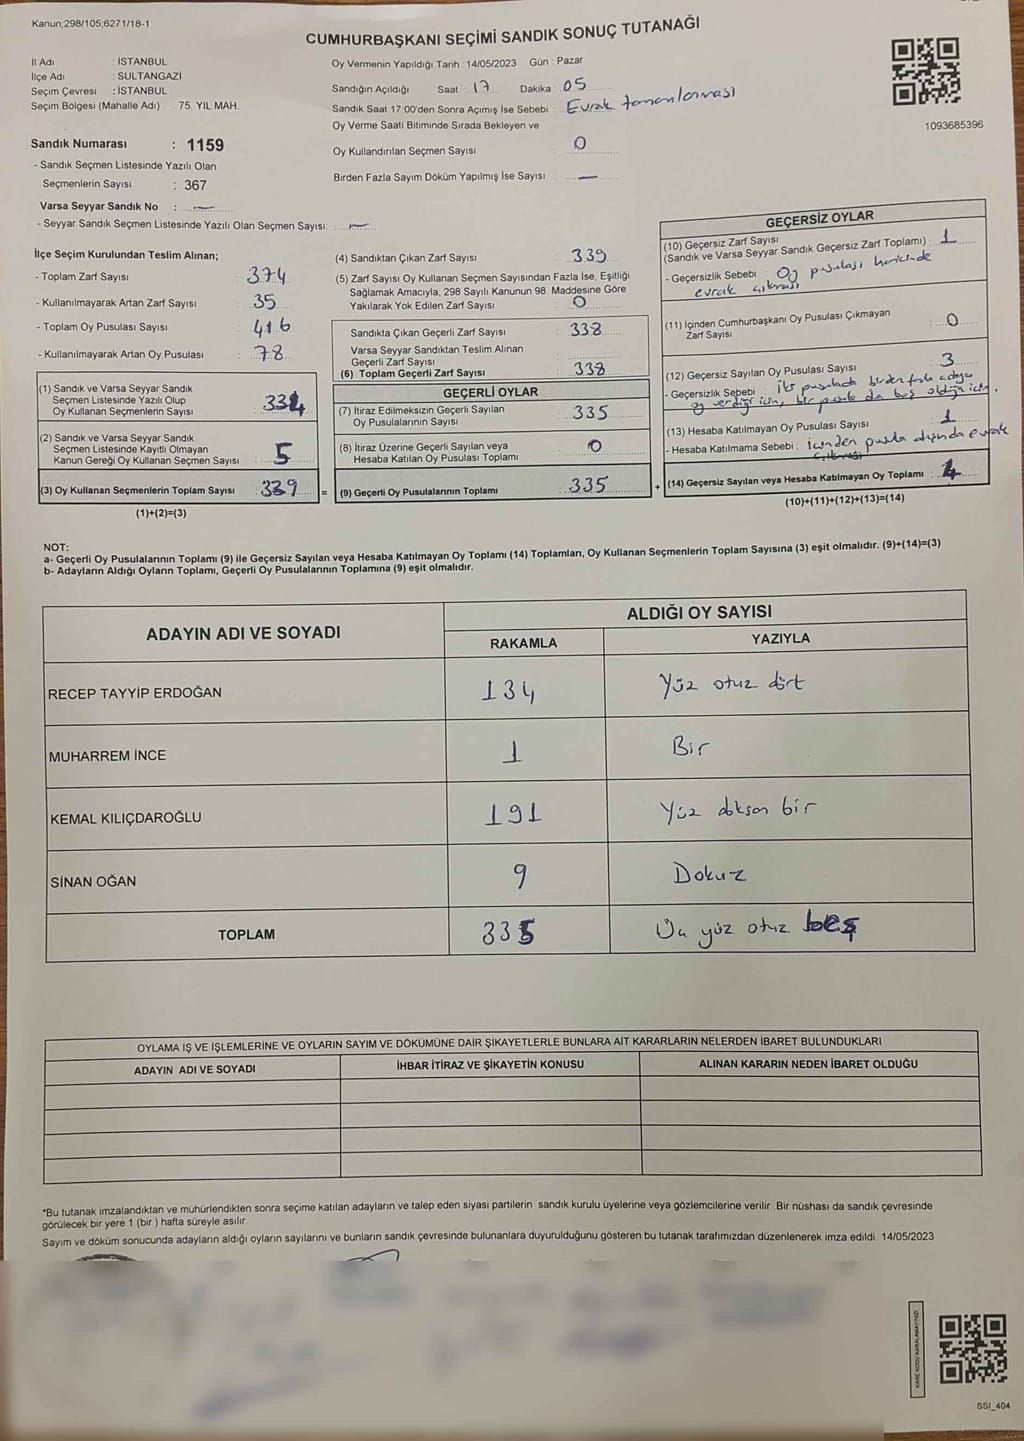 Kanun;298/105;6271/18-1
CUMHURBAŞKANI SEÇİMİ SANDIK SONUÇ TUTANAĞI
İl Adı : İSTANBUL
İlçe Adı : SULTANGAZİ
Seçim Çevresi : İSTANBUL
Seçim Bölgesi (Mahalle Adı) : 75. YIL MAH.
Oy Vermenin Yapıldığı Tarih : 14/05/2023 Gün : Pazar
Sandığın Açıldığı Saat : 17 Dakika : 05
Sandık Saat 17:00'den Sonra Açımış İse Sebebi : Evrak tamamlanması
Oy Verme Saati Bitiminde Sırada Bekleyen ve
Oy Kullandırılan Seçmen Sayısı : 0
Birden Fazla Sayım Döküm Yapılmış İse Sayısı : —
1093685396
Sandık Numarası : 1159
- Sandık Seçmen Listesinde Yazılı Olan
Seçmenlerin Sayısı : 367
Varsa Seyyar Sandık No : —
- Seyyar Sandık Seçmen Listesinde Yazılı Olan Seçmen Sayısı: —
İlçe Seçim Kurulundan Teslim Alınan;
- Toplam Zarf Sayısı : 374
- Kullanılmayarak Artan Zarf Sayısı : 35
- Toplam Oy Pusulası Sayısı : 416
- Kullanılmayarak Artan Oy Pusulası : 78
(1) Sandık ve Varsa Seyyar Sandık
Seçmen Listesinde Yazılı Olup
Oy Kullanan Seçmenlerin Sayısı : 334
(2) Sandık ve Varsa Seyyar Sandık
Seçmen Listesinde Kayıtlı Olmayan
Kanun Gereği Oy Kullanan Seçmen Sayısı : 5
(3) Oy Kullanan Seçmenlerin Toplam Sayısı : 339 =
(1)+(2)=(3)
(4) Sandıktan Çıkan Zarf Sayısı : 339
(5) Zarf Sayısı Oy Kullanan Seçmen Sayısından Fazla İse, Eşitliği
Sağlamak Amacıyla, 298 Sayılı Kanunun 98. Maddesine Göre
Yakılarak Yok Edilen Zarf Sayısı : 0
Sandıkta Çıkan Geçerli Zarf Sayısı : 338
Varsa Seyyar Sandıktan Teslim Alınan
Geçerli Zarf Sayısı
(6) Toplam Geçerli Zarf Sayısı : 338
GEÇERLİ OYLAR
(7) İtiraz Edilmeksizin Geçerli Sayılan
Oy Pusulalarının Sayısı : 335
(8) İtiraz Üzerine Geçerli Sayılan veya
Hesaba Katılan Oy Pusulası Toplamı : 0
(9) Geçerli Oy Pusulalarının Toplamı : 335 +
GEÇERSİZ OYLAR
(10) Geçersiz Zarf Sayısı
(Sandık ve Varsa Seyyar Sandık Geçersiz Zarf Toplamı) : 1
- Geçersizlik Sebebi : Oy pusulası haricinde
evrak çıkması
(11) İçinden Cumhurbaşkanı Oy Pusulası Çıkmayan
Zarf Sayısı : 0
(12) Geçersiz Sayılan Oy Pusulası Sayısı : 3
- Geçersizlik Sebebi : İki pusulada birden fazla adaya
oy verdiği için, bir pusula da boş olduğu için.
(13) Hesaba Katılmayan Oy Pusulası Sayısı : 1
- Hesaba Katılmama Sebebi : İçinden pusula dışında evrak
çıkması
(14) Geçersiz Sayılan veya Hesaba Katılmayan Oy Toplamı : 4
(10)+(11)+(12)+(13)=(14)
NOT:
a- Geçerli Oy Pusulalarının Toplamı (9) ile Geçersiz Sayılan veya Hesaba Katılmayan Oy Toplamı (14) Toplamları, Oy Kullanan Seçmenlerin Toplam Sayısına (3) eşit olmalıdır. (9)+(14)=(3)
b- Adayların Aldığı Oyların Toplamı, Geçerli Oy Pusulalarının Toplamına (9) eşit olmalıdır.
ADAYIN ADI VE SOYADI
ALDIĞI OY SAYISI
RAKAMLA YAZIYLA
RECEP TAYYİP ERDOĞAN 134 Yüz otuz dört
MUHARREM İNCE 1 Bir
KEMAL KILIÇDAROĞLU 191 Yüz doksan bir
SİNAN OĞAN 9 Dokuz
TOPLAM 335 Üç yüz otuz beş
OYLAMA İŞ VE İŞLEMLERİNE VE OYLARIN SAYIM VE DÖKÜMÜNE DAİR ŞİKAYETLERLE BUNLARA AİT KARARLARIN NELERDEN İBARET BULUNDUKLARI
ADAYIN ADI VE SOYADI İHBAR İTİRAZ VE ŞİKAYETİN KONUSU ALINAN KARARIN NEDEN İBARET OLDUĞU
*Bu tutanak imzalandıktan ve mühürlendikten sonra seçime katılan adayların ve talep eden siyasi partilerin sandık kurulu üyelerine veya gözlemcilerine verilir. Bir nüshası da sandık çevresinde
görülecek bir yere 1 (bir ) hafta süreyle asılır.
Sayım ve döküm sonucunda adayların aldığı oyların sayılarını ve bunların sandık çevresinde bulunanlara duyurulduğunu gösteren bu tutanak tarafımızdan düzenlenerek imza edildi. 14/05/2023
KARE KODU KARALAMAYINIZ!
SSI_404